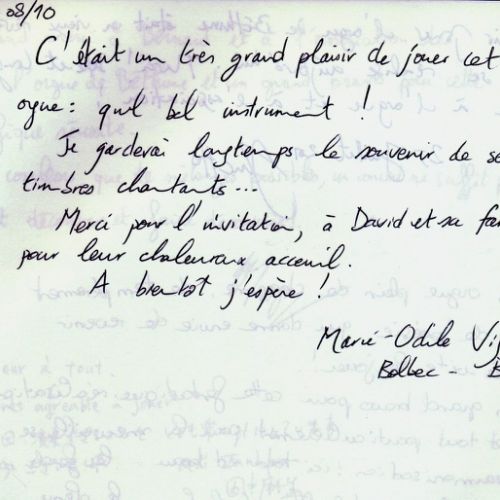 08/10
C'était un très grand plaisir de jouer cet
orgue : quel bel instrument !
Je garderai longtemps le souvenir de se
timbres chantants...
Merci pour l'invitation, à David et sa fam
pour leur chaleureux acceuil.
A bientôt j'espère !
Marie-Odile Vi
Bolbec - B